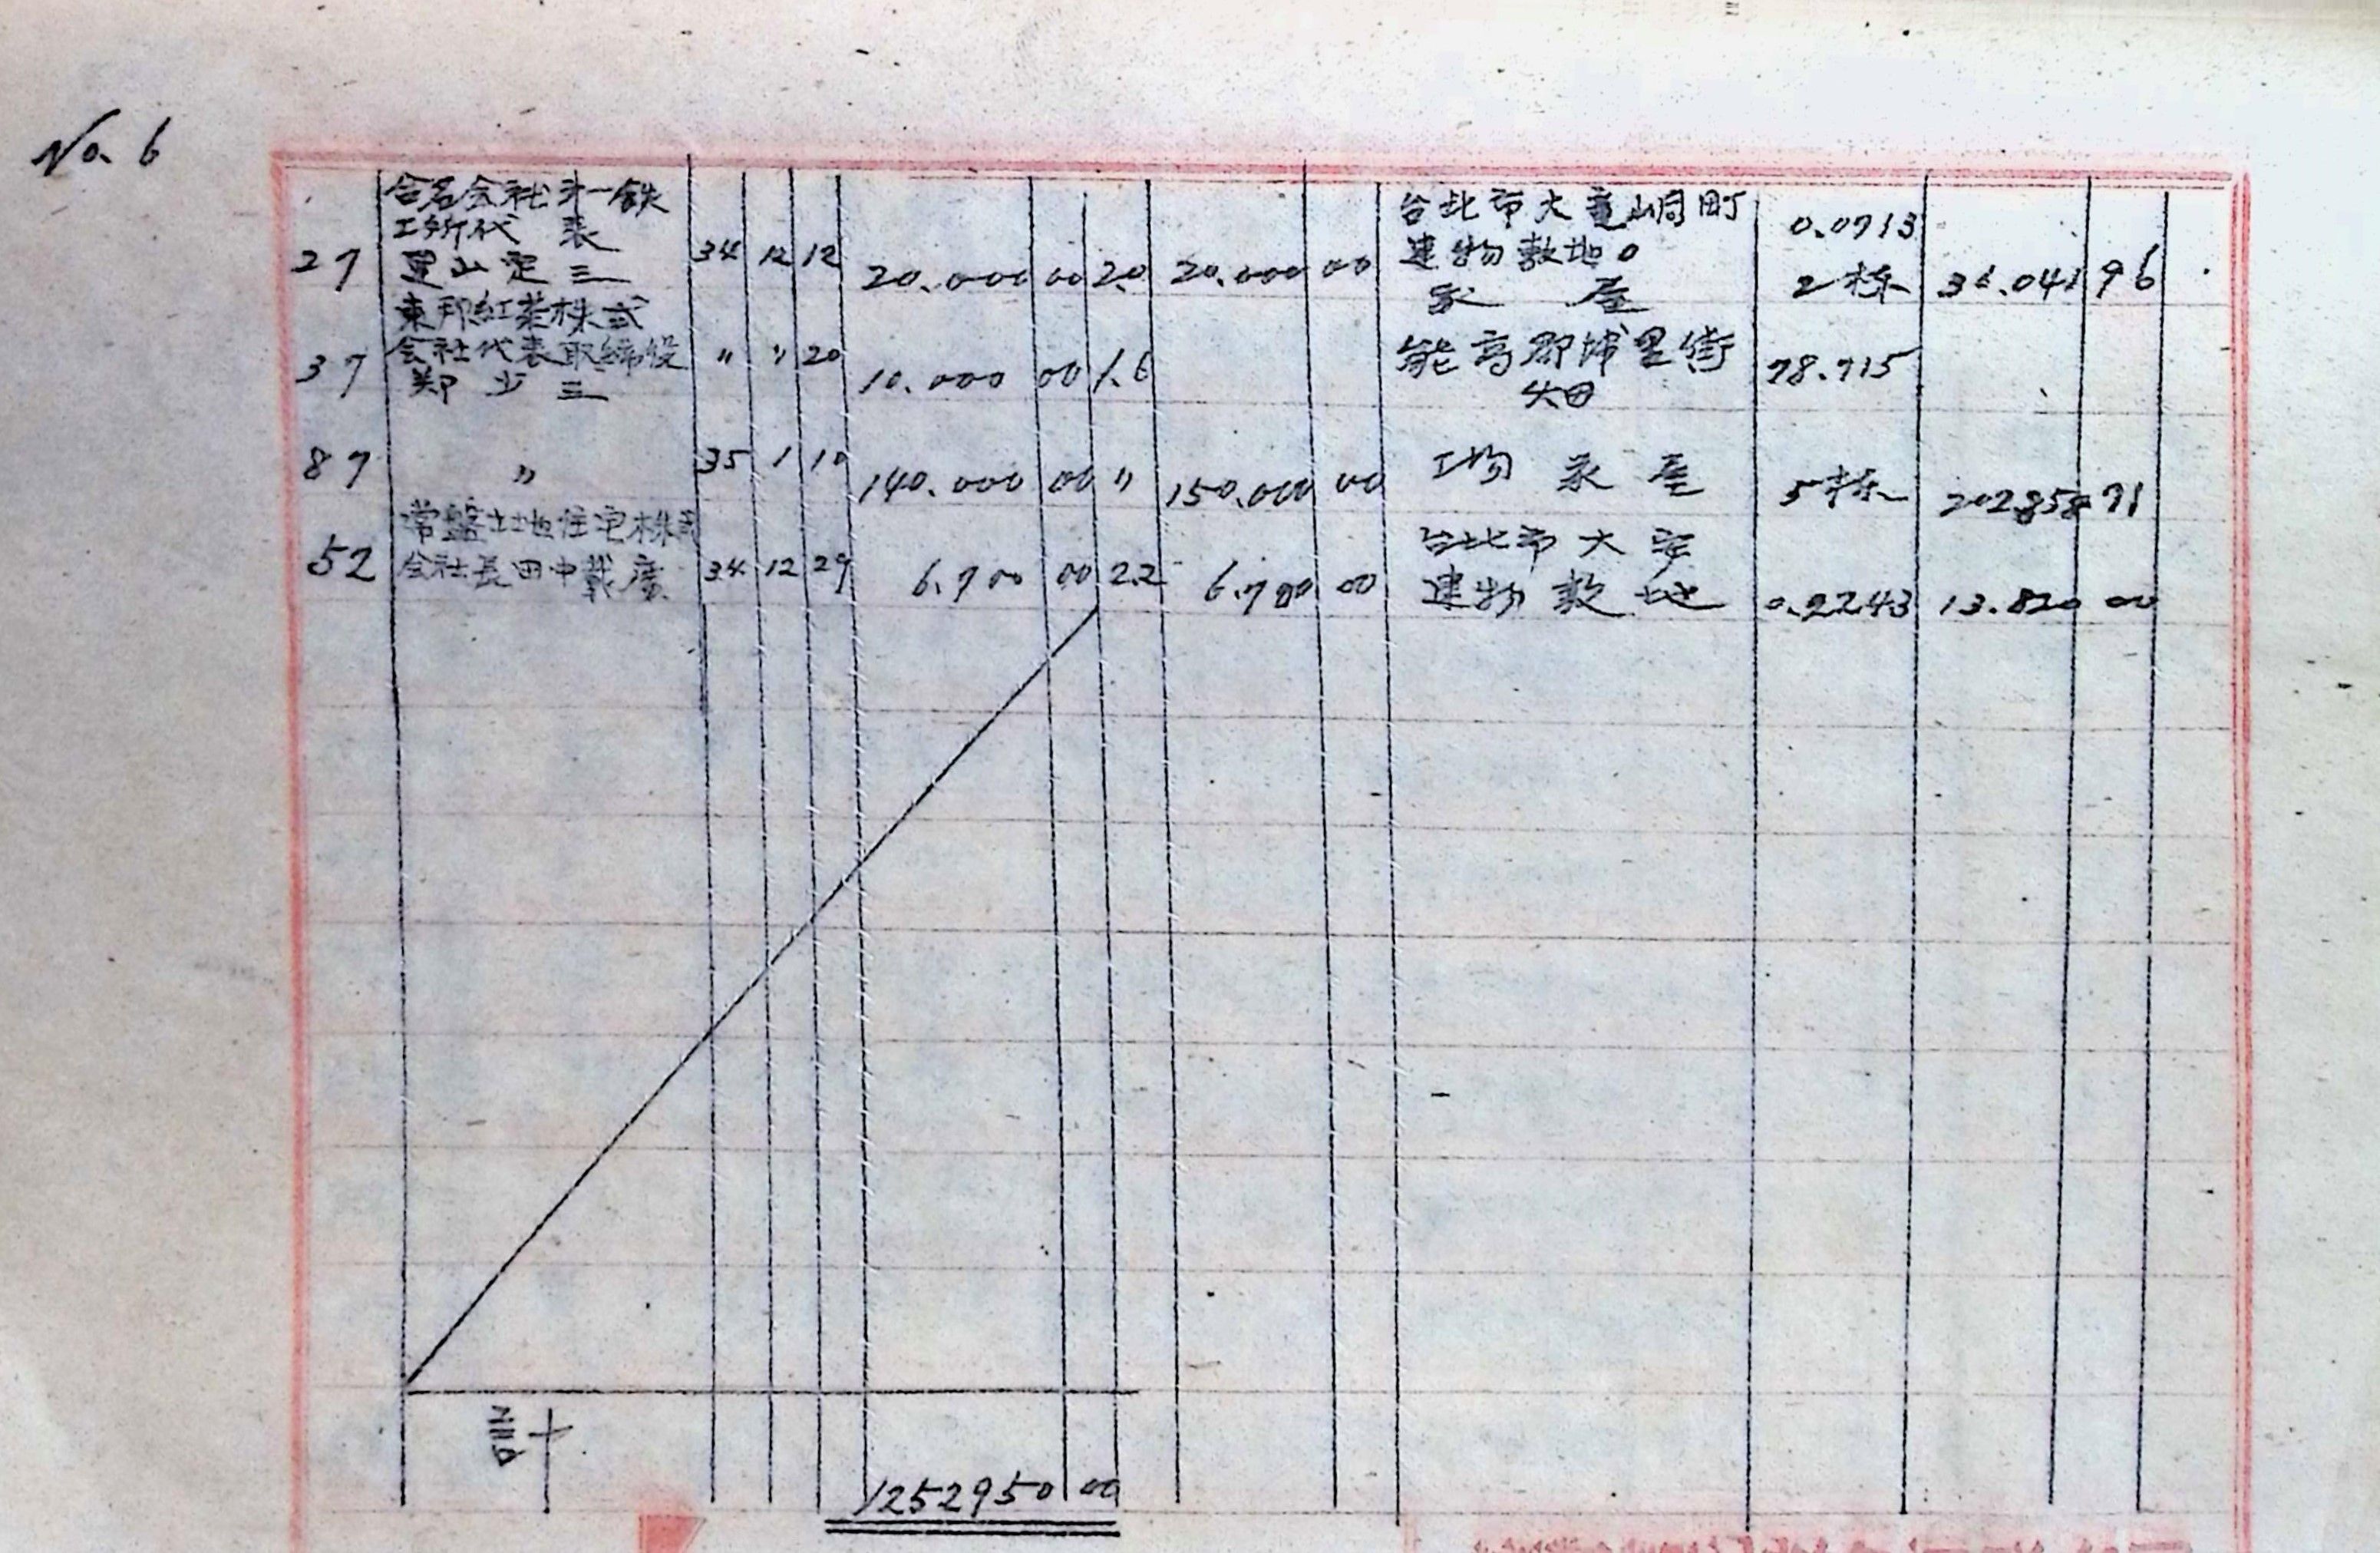 No. 6
合名会社第一鉄
工所代表
27 里山定三 34 12 12 20.000 00 2.0 20.000 00 台北市大竜峒町 0.0713
建物敷地
家屋 2栋 36.041 96
東邦紅茶株式
会社代表取締役
37 鄭少三 〃 〃 20 10.000 00 1.6 能高郡埔里街 78.715
畑
87 〃 35 1 10 140.000 00 〃 150.000 00 工場家屋 5栋 202858 71
常盤土地住宅株式
52 会社長田中 廣 34 12 29 6.700 00 2.2 6.700 00 台北市大安
建物敷地 0.2243 13.820 00
計
1252950 00